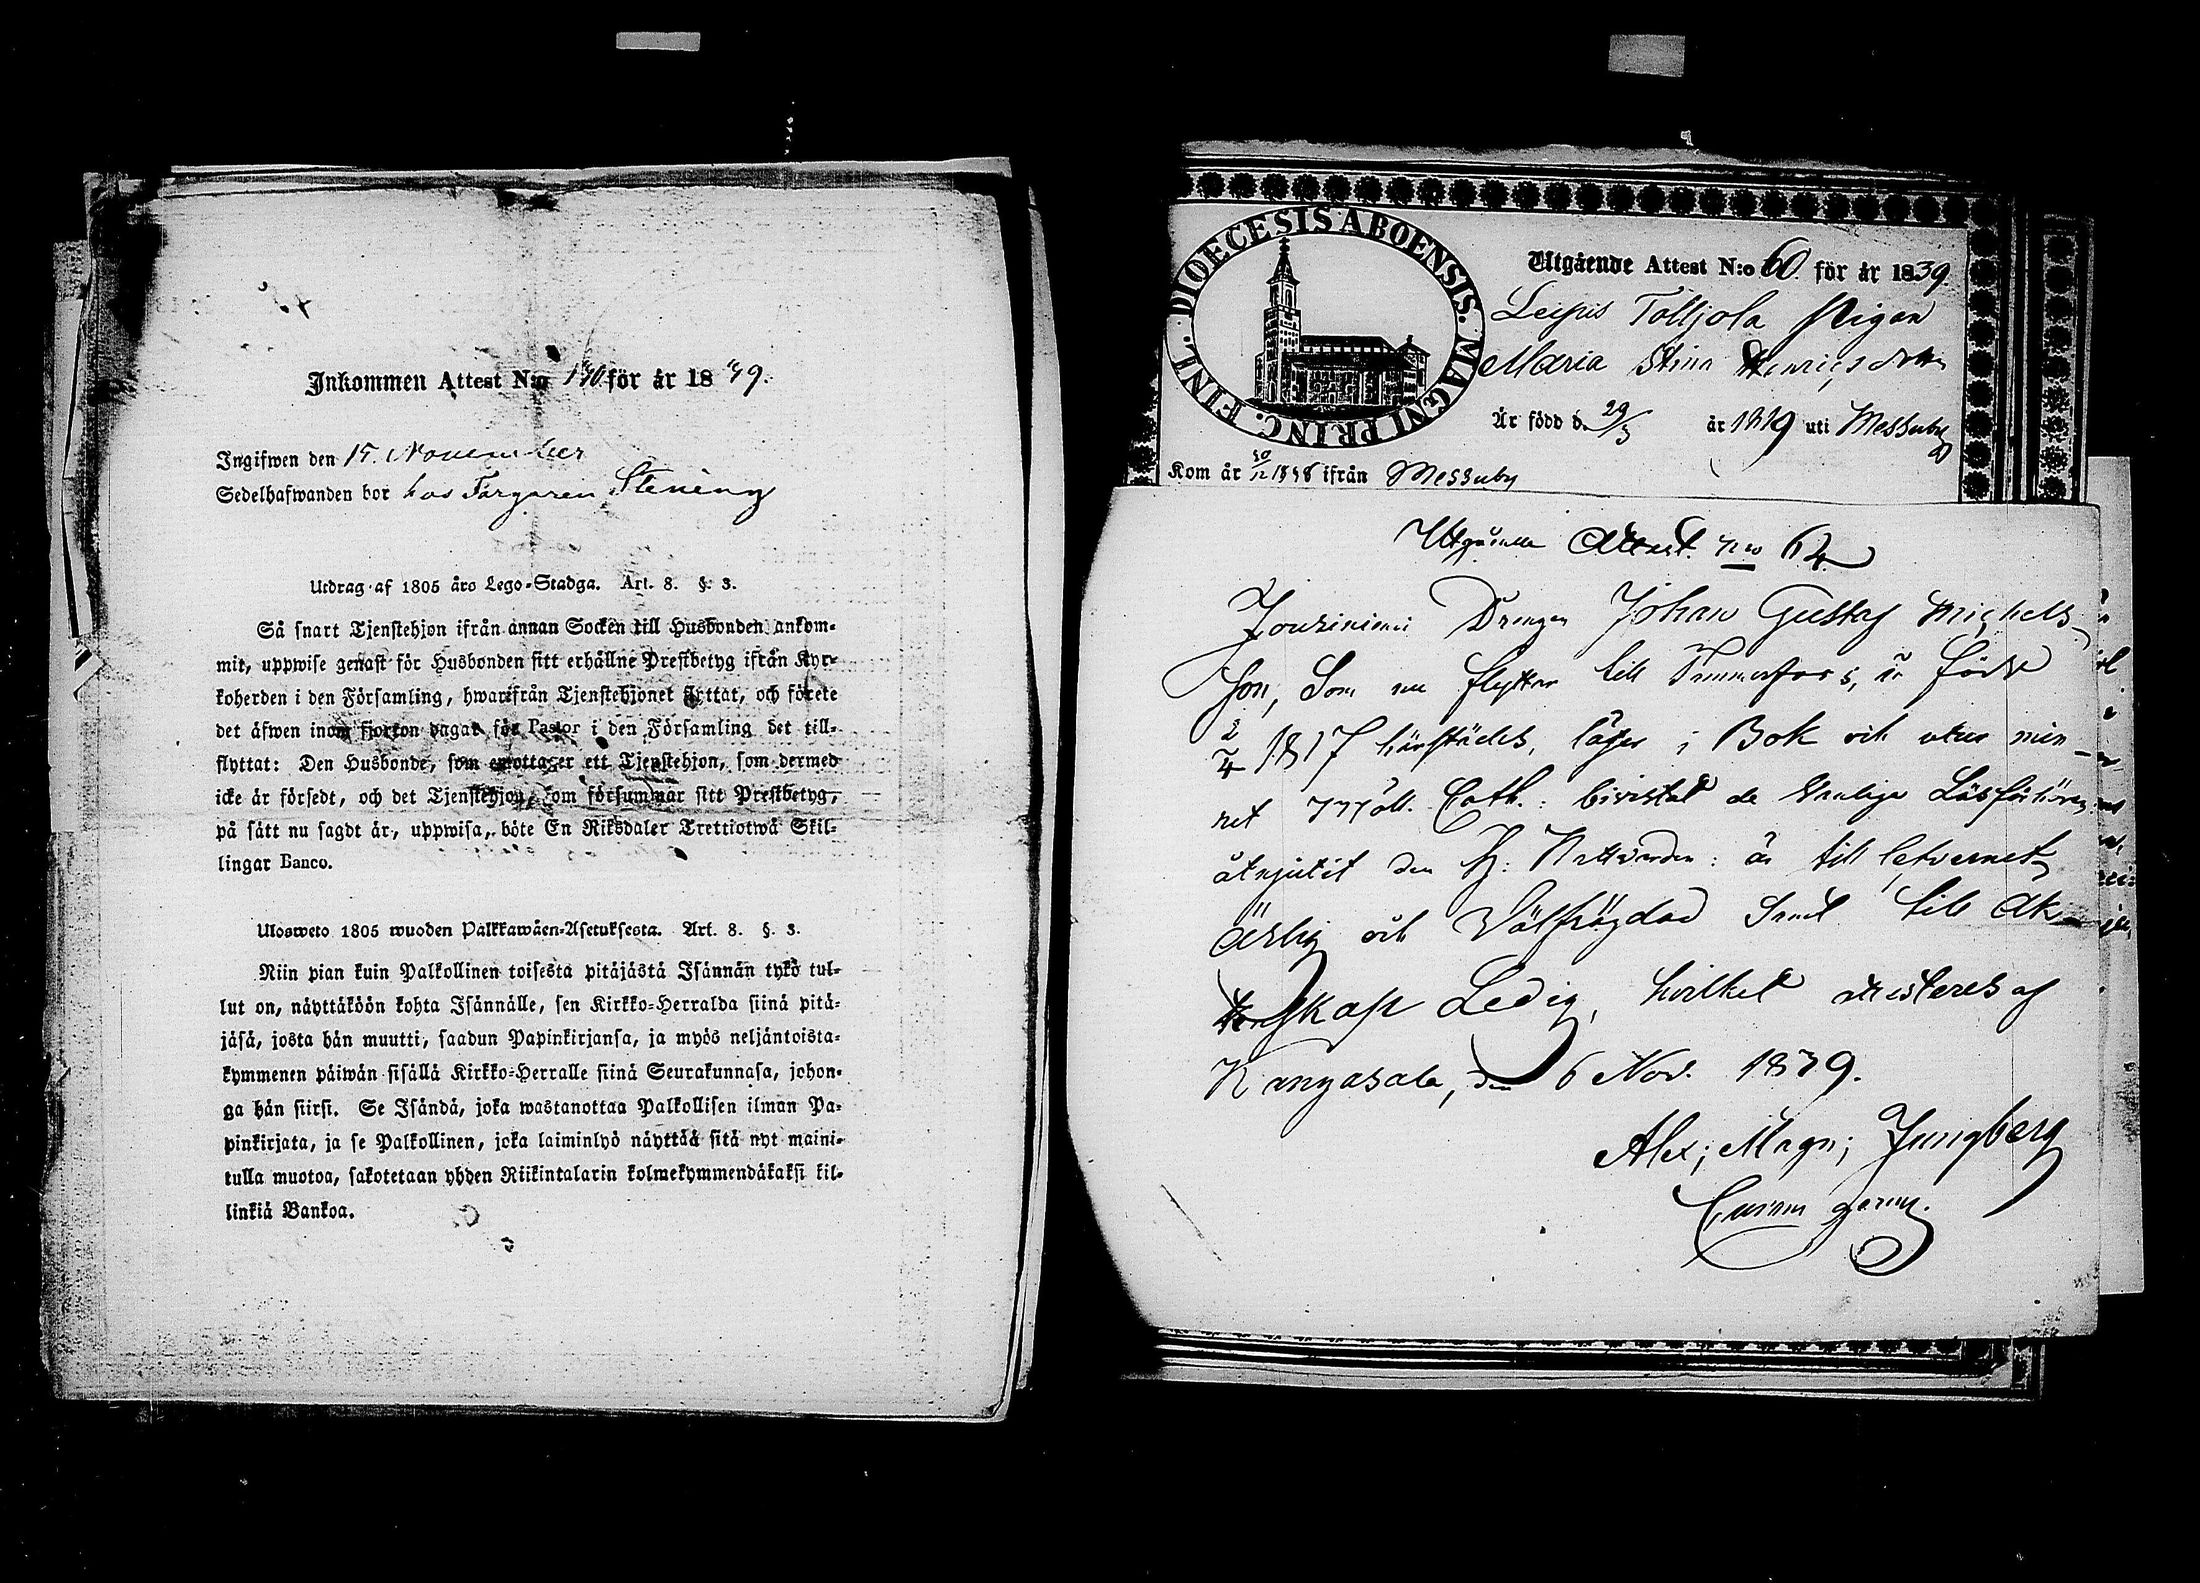 Inkommen Attest N:o 130 för år 1839.
Ingifwen den 15. November
Sedelhafwanden bor hos Färgaren Stening
Utdrag af 1805 års Lego-Stadga. Art. 8. §. 3.
Så snart Tjenstehjon ifrån annan Socken till Husbonden ankom-
mit, uppwise genast för Husbonden sitt erhållne Prestbetyg ifrån Kyr-
koherden i den Församling, hwarifrån Tjenstehjonet flyttat, och förete
det äfwen inom fjorton dagar för Pastor i den Församling det till-
flyttat: Den Husbonde, som emottager ett Tjenstehjon, som dermed
icke är försedt, och det Tjenstehjon, som försummar sitt Prestbetyg,
på sätt nu sagdt är, uppwisa, böte En Riksdaler Trettiotwå Skil-
lingar Banco.
Ulosweto 1805 wuoden Palkkawäen-Asetuksesta. Art. 8. §. 3.
Niin pian kuin Palkollinen toisesta pitäjästä Isännän tykö tul-
lut on, näyttäköön kohta Isännälle, sen Kirkko-Herralda siinä pitä-
jäsä, josta hän muutti, saadun Papinkirjansa, ja myös neljäntoista-
kymmenen päiwän sisällä Kirkko-Herralle siinä Seurakunnasa, johon-
ga hän siirsi. Se Isändä, joka wastanottaa Palkollisen ilman Pa-
pinkirjata, ja se Palkollinen, joka laiminlyö näyttää sitä nyt maini-
tulla muotoa, sakotetaan yhden Riikintalarin kolmekymmendäkaksi kil-
linkiä Bankoa.
DIOECESIS ABOENSIS. MAGNI PRINC. FINL.
Utgående Attest N:o 60. för år 1839.
Leipis Tolljola Pigan
Maria Stina Henricsdotter
Är född d. 29/3 år 1819 uti Messuby
Kom år 30/12 1838 ifrån Messuby
Utgående Attest. No 64
Drengen Johan Gustaf Michels-
son, Som nu flyttar till Tammerfors, är född
2/4 1817 härstädes, läser i Bok och utur min-
net Cath.: bivistat de vanlige Läsförhören
åtnjutit den H: Nattvarden: är till lefvernet
Ärlig och Välfrägdad Samt till Äk-
tenskap Ledig, hvilket attesteras af
Kangasala, den 6 Nov. 1839.
Alex; Magn; Jungberg